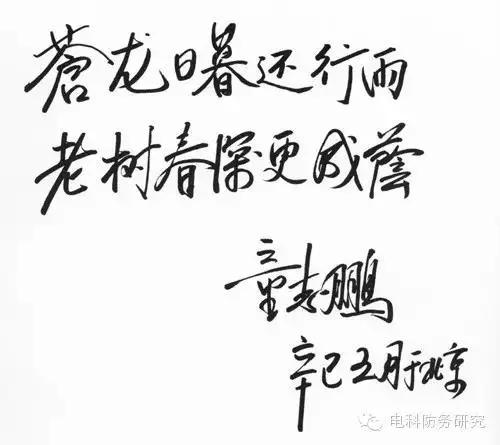 蒼龙日暮还行雨
老树春深更成蔭
童志鹏
辛巳五月于北京
电科防务研究